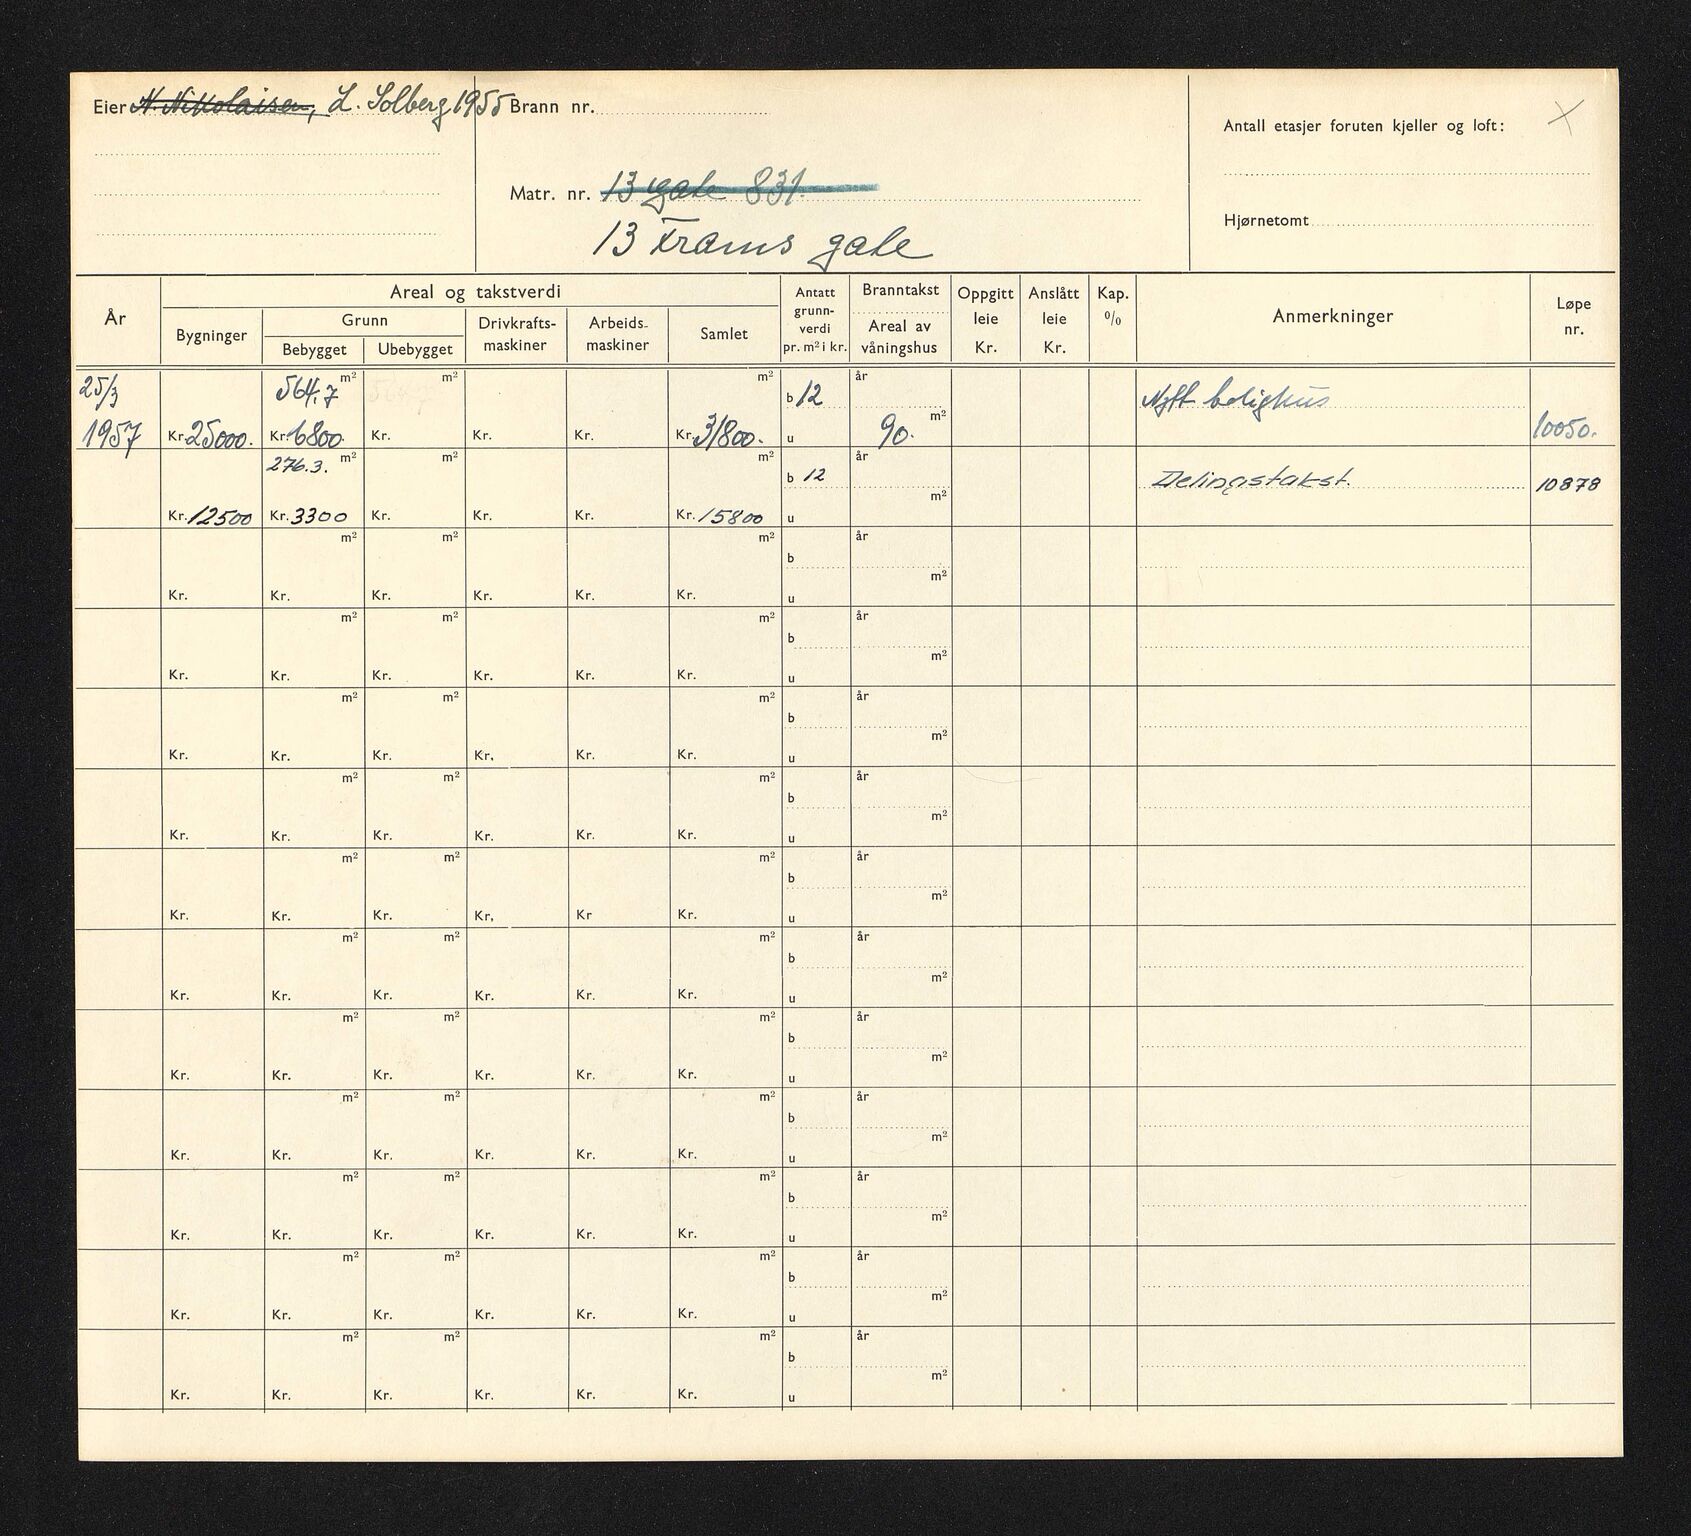 Eier N. Nikolaisen, L. Solberg 1955
Brann nr.
Matr. nr. 13 gate 831.
13 Frams gate
Antall etasjer foruten kjeller og loft:
Hjørnetomt
År
Areal og takstverdi
Bygninger
Grunn
Bebygget Ubebygget
Drivkrafts-
maskiner
Arbeids-
maskiner
Samlet
Antatt
grunn-
verdi
pr. m² i kr.
Branntakst
Areal av
våningshus
Oppgitt
leie
Kr.
Anslått
leie
Kr.
Kap.
%
Anmerkninger
Løpe
nr.
25/3 564,7 m² m² m² b 12 år Nytt bolighus
1957 Kr. 25000. Kr. 6800. Kr. Kr. Kr. Kr. 31800. u 90. m² 10050.
276.3. m² m² m² b 12 år Delingstakst. 10878
Kr. 12500 Kr. 3300 Kr. Kr. Kr. Kr. 15800 u m²
m² m² m² b år
Kr. Kr. Kr. Kr. Kr. Kr. u m²
m² m² m² b år
Kr. Kr. Kr. Kr. Kr. Kr. u m²
m² m² m² b år
Kr. Kr. Kr. Kr, Kr. Kr. u m²
m² m² m² b år
Kr. Kr. Kr. Kr. Kr. Kr. u m²
m² m² m² b år
Kr. Kr. Kr. Kr, Kr Kr. u m²
m² m² m² b år
Kr. Kr. Kr. Kr. Kr. Kr. u m²
m² m² m² b år
Kr. Kr. Kr. Kr. Kr. Kr. u m²
m² m² m² b år
Kr. Kr. Kr. Kr. Kr. Kr. u m²
m² m² m² b år
Kr. Kr. Kr. Kr. Kr. Kr. u m²
m² m² m² b år
Kr. Kr. Kr. Kr. Kr. Kr. u m²
m² m² m² b år
Kr. Kr. Kr. Kr. Kr. Kr. u m²